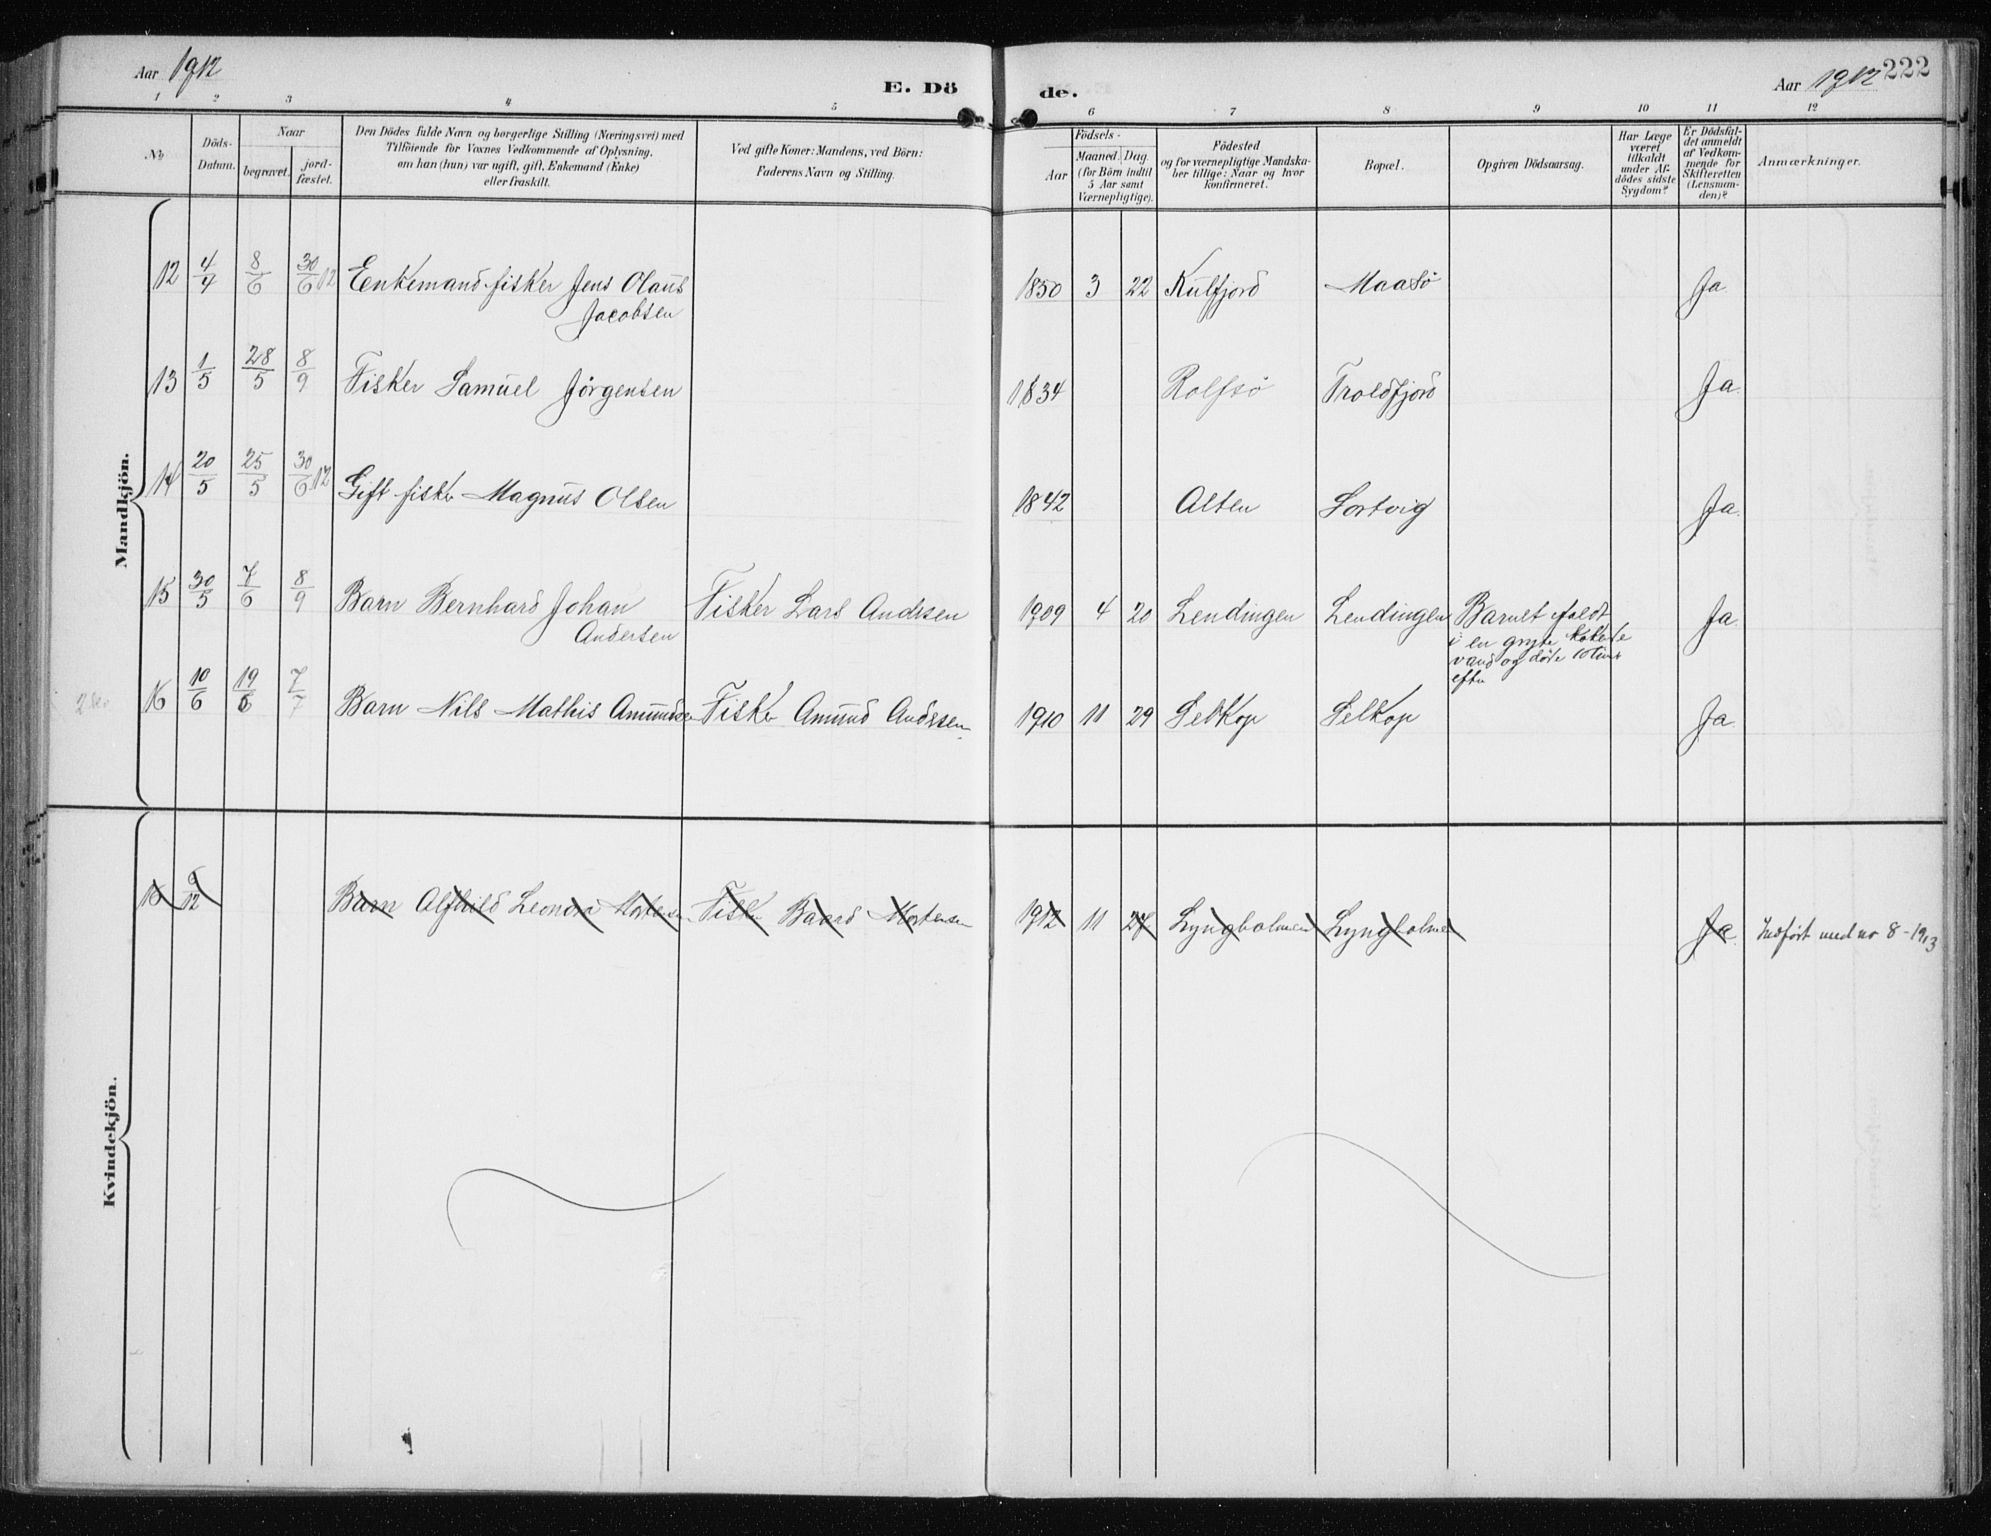 Aar 1912
E. Dö
de.
Aar 1912
222
1 2 3 4 5 6 7 8 9 10 11 12
No
Döds-
Datum.
Naar
begravet.
jord-
fæstet.
Den Dödes fulde Navn og borgerlige Stilling (Næringsvei) med
Tilföiende for Voxnes Vedkommende af Oplysning,
om han (hun) var ugift, gift, Enkemand (Enke)
eller fraskilt.
Ved gifte Koner: Mandens, ved Börn:
Faderens Navn og Stilling.
Födsels-
Aar
Maaned. Dag.
(for Börn indtil
5 Aar samt
Værnepligtige).
Födested
og for værnepligtige Mandska-
ber tillige: Naar og hvor
konfirmeret.
Bopæl.
Opgiven Dödsaarsag.
Har Læge
været
tilkaldt
under Af-
dödes sidste
Sygdom?
Er Dödsfal-
det anmeldt
af Vedkom-
mende for
Skifteretten
(Lensman-
den)?
Anmærkninger.
Mandkjön.
12 4/4 8/6 30/6 12 Eenkemand fisker Jens Olaus
Jacobsen
1850 3 22 Kulfjord Maasö Ja
13 1/5 28/5 8/9 Fisker Samuel Jörgensen 1834 Rolfsö Troldfjord Ja.
14 20/5 25/5 30/6 12 Gift fisker Magnus Olsen 1842 Alten Sortvig Ja.
15 30/5 7/6 8/9 Barn Bernhard Johan
Andersen
Fisker Lars Andersen 1909 4 20 Lendingen Lendingen Barnet faldt
i en gryte kokende
vand og döde 10 timer
efter
Ja
16 10/6 19/6 7/7 Barn Nils Mathis Amundsen Fisker Amund Andersen 1910 11 29 Selkop Selkop Ja
Kvindekjön.
/12 Barn Alfhild Leonora Mortensen Fisker Baard Mortensen 1912 11 27 Lyngholmen Lyngholmen Ja. Indfört med no 8-1913